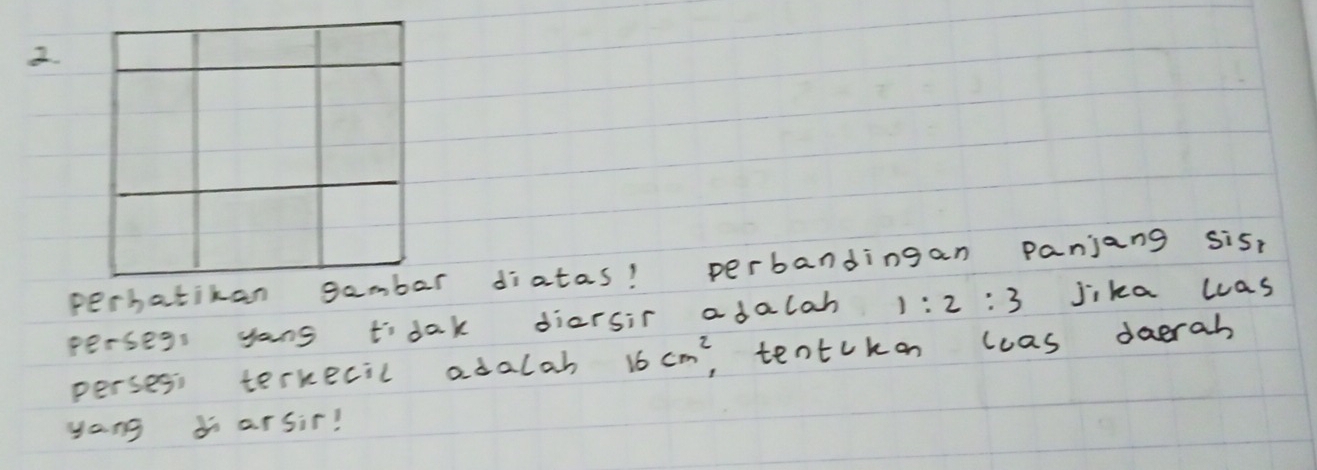 2.
perhatikan gambar diatas! perbandingan panjang sisi
persegi yang tidak diarsir adalah 1:2:3 jika luas
persegi terkecil adalah 16 cm², tentukan luas daerah
yang diarsir!